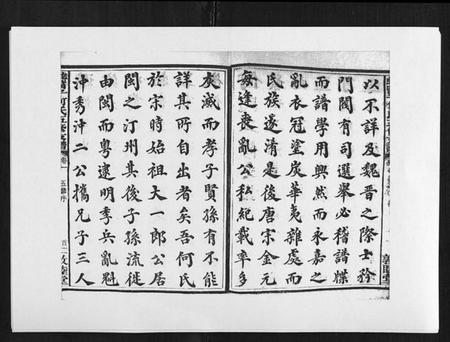 以不詳及魏晋之際士矜
門閥有司選舉必稽譜牒
而譜學用興然而永嘉之
亂衣冠塗炭華夷雜處而
氏族遂淆是後唐宋金元
每逢喪亂公私紀載率多
灰滅而孝子賢孫有不能
詳其所自出者矣吾何氏
於宋時始祖大一郎公居
閩之汀州其後子孫流徙
由閩而粵逮明季兵亂魁
沖秀沖二公攜兄子三人
五修序
敦睦堂